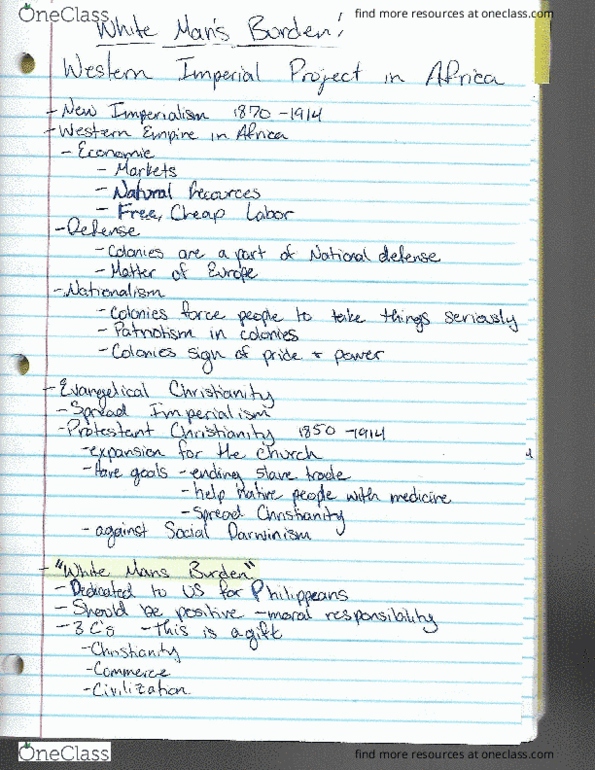 OneClass
find more resources at oneclass.com
White Man's Burden!
Western Imperial Project in Africa
- New Imperialism 1870-1914
- Western Empire in Africa
- Economic
- Markets
- Natural Recources
- Free, Cheap Labor
- Defense
- Colonies are a part of National defense
- Matter of Europe
- Nationalism
- Colonies force people to take things seriously
- Patriotism in colonies
- Colonies sign of pride + power
- Evangelical Christianity
- Spread Imperialism
- Protestant Christianity 1850-1914
- expansion for the church
- Have goals - ending slave trade
- help native people with medicine
- Spread Christianity
- against Social Darwinism
- "White Mans Burden"
- Dedicated to US for Philippeans
- Should be positive - moral responsibility
- 3 C's - this is a gift
- Christianity
- Commerce
- Civilization
OneClass
find more resources at oneclass.com